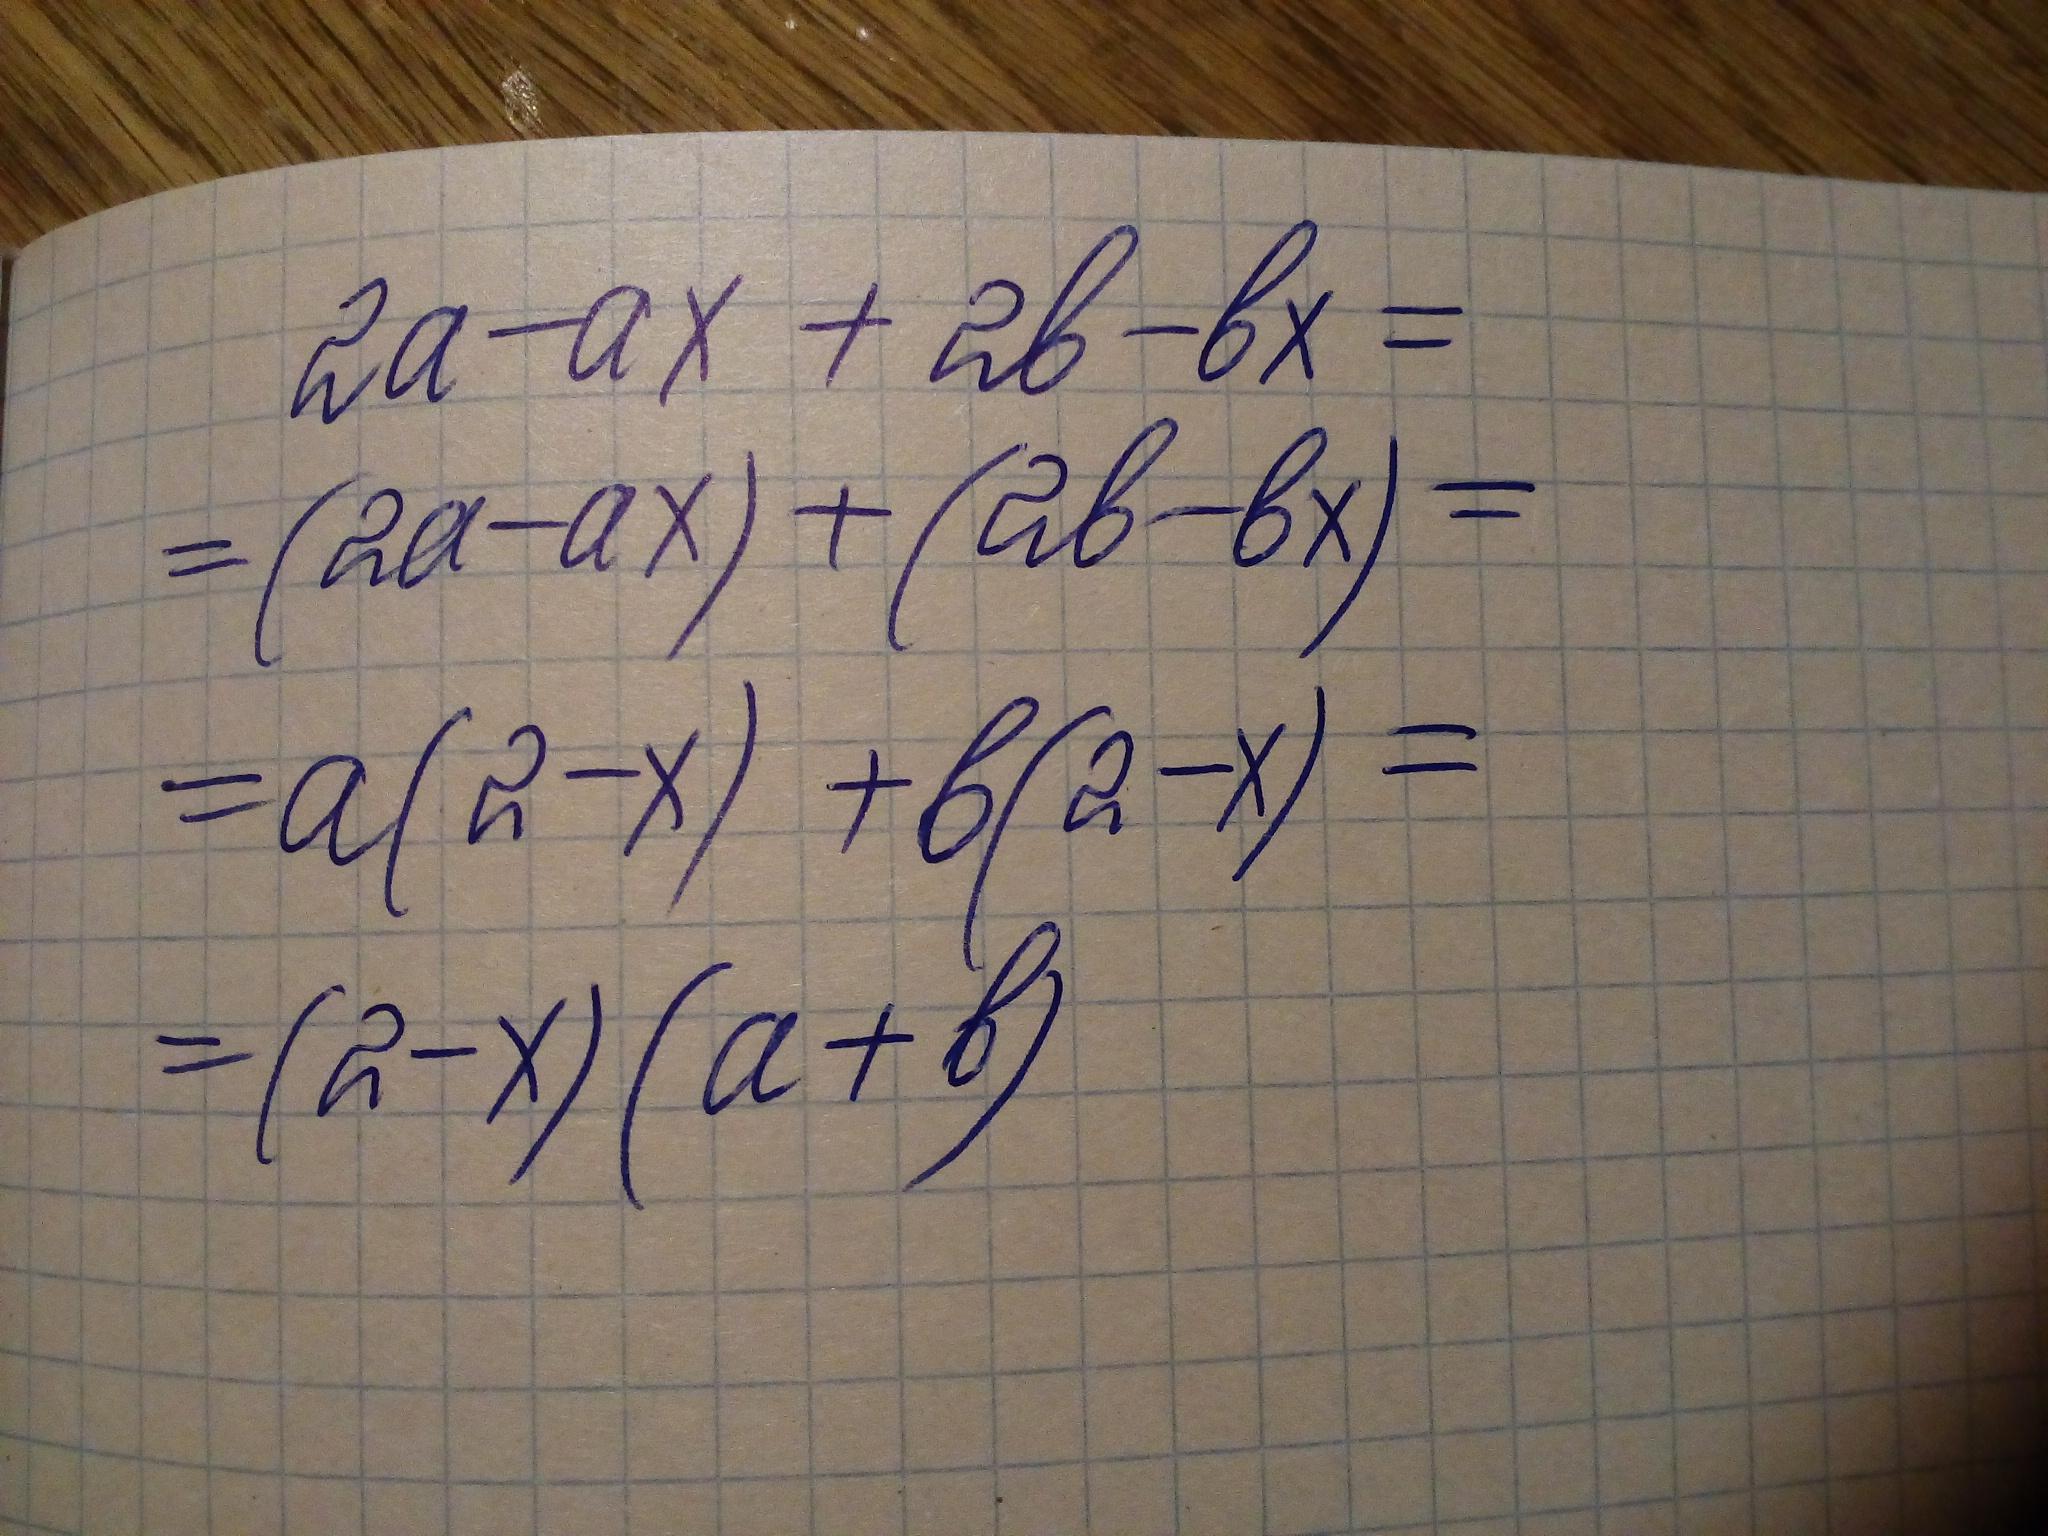 2a-ax + 2b-bx =
=(2a-ax)+(2b-bx)=
=a(2-x) +b(2-x) =
=(2-x)(a+b)